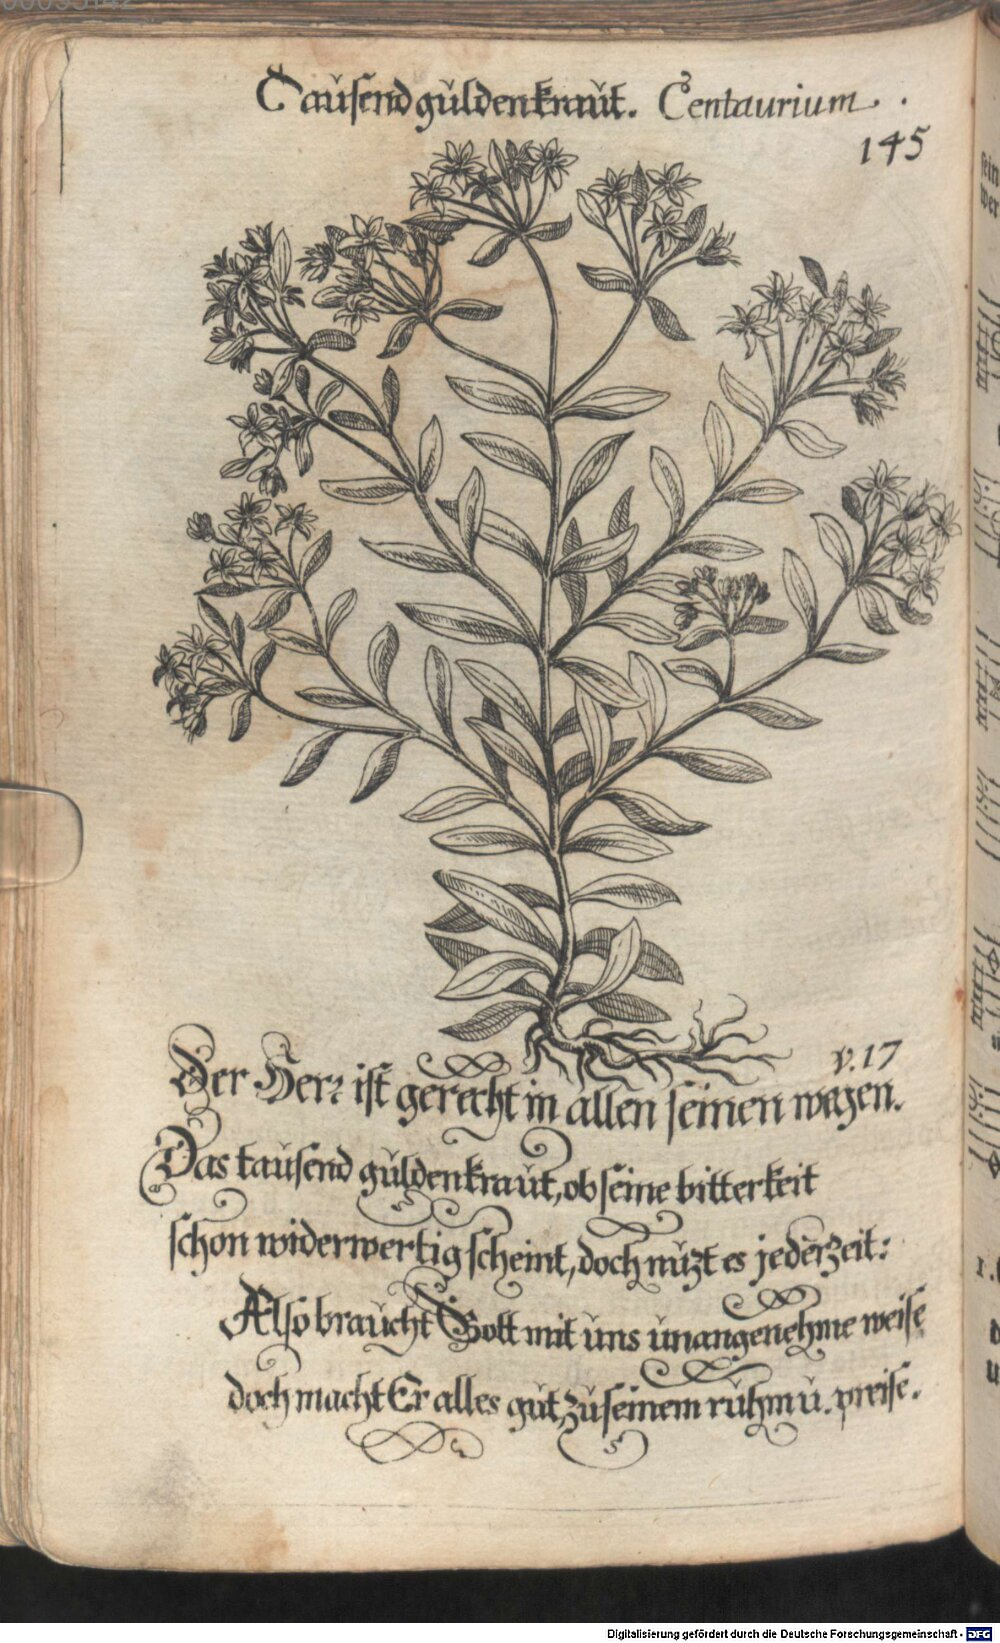 Tausend guldenkraut. Centaurium.
145
v. 17
Der Herr ist gerecht in allen seinen wegen.
Das tausend guldenkraut, ob seine bitterkeit
schon widerwertig scheint, doch nuzt es jederzeit:
Also braucht Gott mit uns unangenehme weise
doch macht Er alles gut, zu seinem ruhm u. preise.
Digitalisierung gefördert durch die Deutsche Forschungsgemeinschaft - DFG